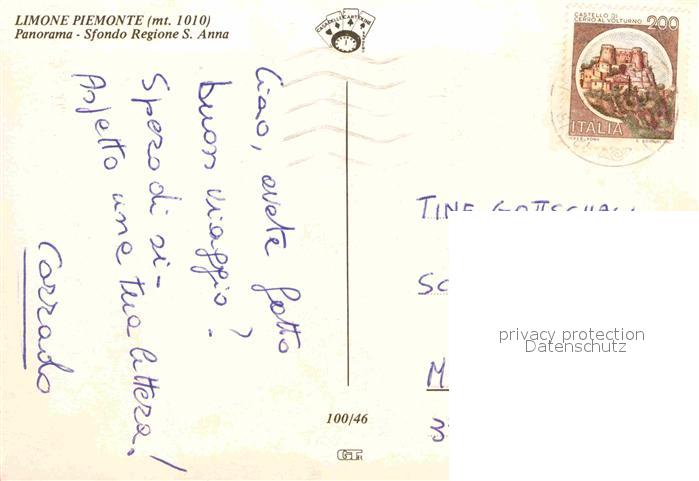 LIMONE PIEMONTE (mt. 1010)
Panorama - Sfondo Regione S. Anna
CASTELLO DI
CERRO AL VOLTURNO
200
ITALIA
Ciao, avete fatto
buon viaggio?
Spero di sì -
Aspetto una tua lettera!
Corrado
TINE
privacy protection
Datenschutz
100/46